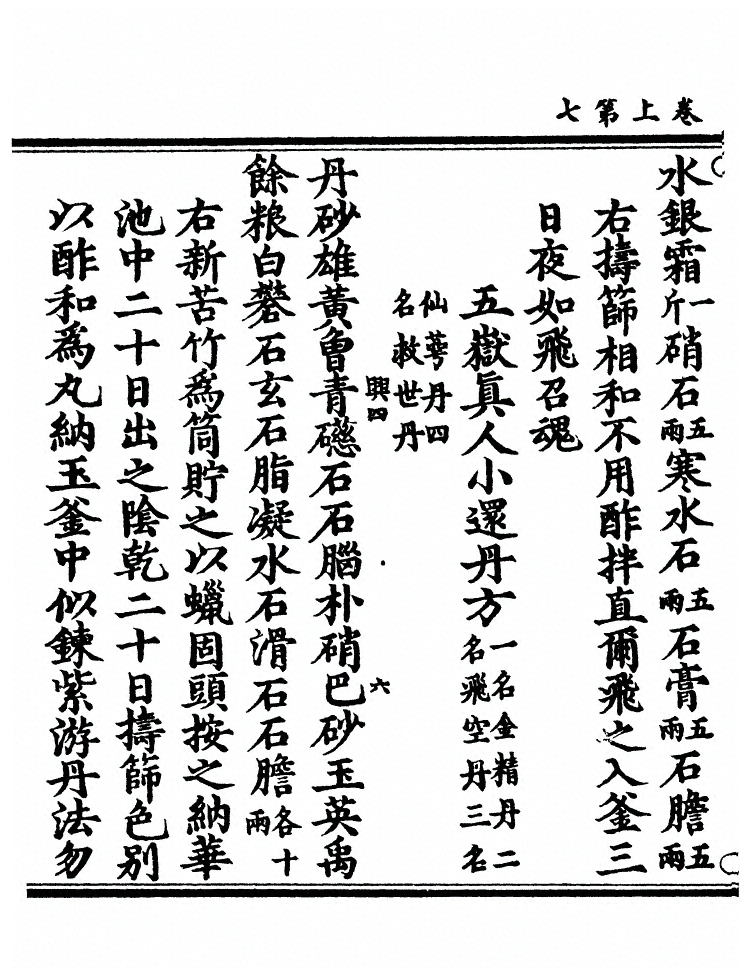 卷上第七
水銀霜一斤硝石五兩寒水石五兩石膏五兩石膽五兩
右擣篩相和不用酢拌直爾飛之入釜三
日夜如飛召魂
五嶽眞人小還丹方一名金精丹二名飛空丹三名
仙蕚丹四名救世丹
興四
六
丹砂雄黃曾青礠石石腦朴硝巴砂玉英禹
餘粮白礬石玄石脂凝水石滑石石膽各十兩
右新苦竹爲筒貯之以蠟固頭按之納華
池中二十日出之陰乾二十日擣篩色別
以酢和爲丸納玉釜中似鍊紫游丹法勿